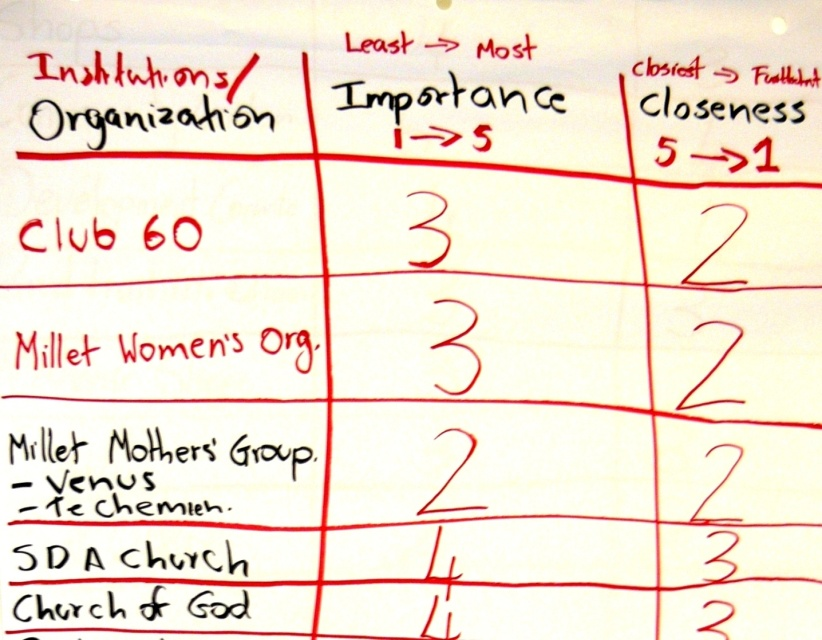 Least → Most
Institutions/
Organization
Importance
1 → 5
closiest →
Closeness
5 → 1
Club 60
3
2
Millet Women's Org.
3
2
Millet Mothers' Group.
- Venus
- Te Chemien.
2
2
SDA Church
4
3
Church of God
4
3